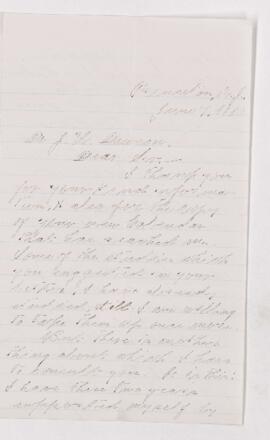 Princeton, N.J.
June 7, 18
Dr. J. W. Dawson,
Dear Sir:—
I thank you
for your kind informa-
tion, & also for the copy
of your new Calendar
that has reached me.
Some of the studies which
you suggested in your
letter I have already
studied, still I am willing
to take them up once more.
But there is another
thing about which I have
to consult you. It is this:
I have these two years
supported myself by